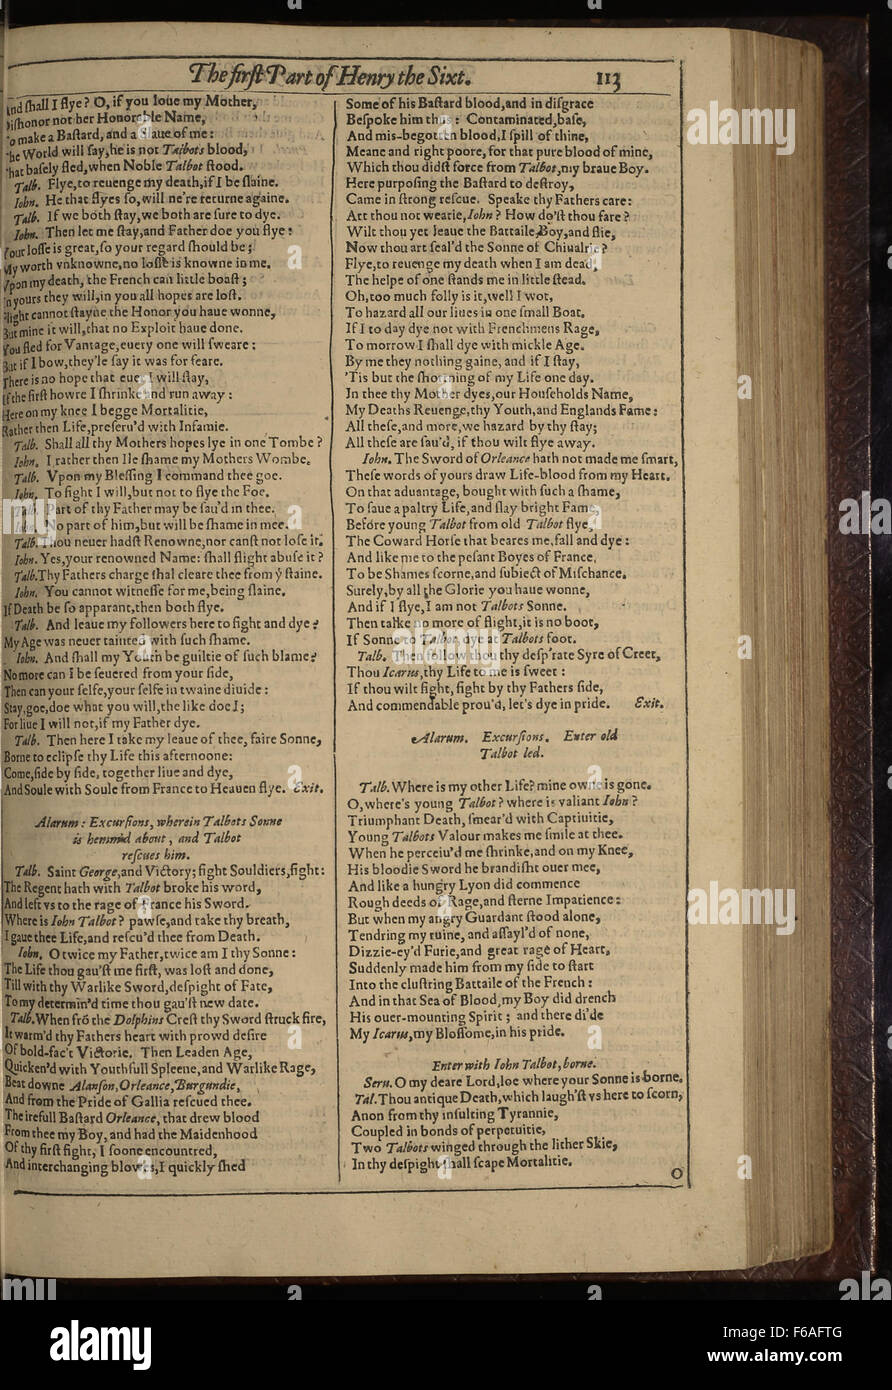 The first Part of Henry the Sixt. 113
And shall I flye? O, if you loue my Mother,
Dishonor not her Honorable Name,
To make a Bastard, and a Slaue of me:
The World will say, he is not Talbots blood,
That basely fled, when Noble Talbot stood.
Talb. Flye, to reuenge my death, if I be slaine.
Iohn. He that flyes so, will ne're returne againe.
Talb. If we both stay, we both are sure to dye.
Iohn. Then let me stay, and Father doe you flye:
Your losse is great, so your regard should be;
My worth vnknowne, no losse is knowne in me.
Vpon my death, the French can little boast;
In yours they will, in you all hopes are lost.
Flight cannot stayne the Honor you haue wonne,
But mine it will, that no Exploit haue done.
You fled for Vantage, euery one will sweare:
But if I bow, they'le say it was for feare.
There is no hope that euer I will stay,
If the first howre I shrinke and run away:
Here on my knee I begge Mortalitie,
Rather then Life, preseru'd with Infamie.
Talb. Shall all thy Mothers hopes lye in one Tombe?
Iohn. I rather then Ile shame my Mothers Wombe.
Talb. Vpon my Blessing I command thee goe.
Iohn. To fight I will, but not to flye the Foe.
Talb. Part of thy Father may be sau'd in thee.
Iohn. No part of him, but will be shame in mee.
Talb. Thou neuer hadst Renowne, nor canst not lose it.
Iohn. Yes, your renowned Name: shall flight abuse it?
Talb. Thy Fathers charge shal cleare thee from yͭ staine.
Iohn. You cannot witnesse for me, being slaine.
If Death be so apparant, then both flye.
Talb. And leaue my followers here to fight and dye?
My Age was neuer tainted with such shame.
Iohn. And shall my Youth be guiltie of such blame?
No more can I be seuered from your side,
Then can your selfe, your selfe in twaine diuide:
Stay, goe, doe what you will, the like doe I;
For liue I will not, if my Father dye.
Talb. Then here I take my leaue of thee, faire Sonne,
Borne to eclipse thy Life this afternoone:
Come, side by side, together liue and dye,
And Soule with Soule from France to Heauen flye. Exit.
Alarum: Excursions, wherein Talbots Sonne
is hemm'd about, and Talbot
rescues him.
Talb. Saint George, and Victory; fight Souldiers, fight:
The Regent hath with Talbot broke his word,
And left vs to the rage of France his Sword.
Where is Iohn Talbot? pawse, and take thy breath,
I gaue thee Life, and rescu'd thee from Death.
Iohn. O twice my Father, twice am I thy Sonne:
The Life thou gau'st me first, was lost and done,
Till with thy Warlike Sword, despight of Fate,
To my determin'd time thou gau'st new date.
Talb. When frõ the Dolphins Crest thy Sword struck fire,
It warm'd thy Fathers heart with prowd desire
Of bold-fac't Victorie. Then Leaden Age,
Quicken'd with Youthfull Spleene, and Warlike Rage,
Beat downe Alanson, Orleance, Burgundie,
And from the Pride of Gallia rescued thee.
The irefull Bastard Orleance, that drew blood
From thee my Boy, and had the Maidenhood
Of thy first fight, I soone encountred,
And interchanging blowes, I quickly shed
Some of his Bastard blood, and in disgrace
Bespoke him thus: Contaminated, base,
And mis-begotten blood, I spill of thine,
Meane and right poore, for that pure blood of mine,
Which thou didst force from Talbot, my braue Boy.
Here purposing the Bastard to destroy,
Came in strong rescue. Speake thy Fathers care:
Art thou not wearie, Iohn? How do'st thou fare?
Wilt thou yet leaue the Battaile, Boy, and flie,
Now thou art seal'd the Sonne of Chiualrie?
Flye, to reuenge my death when I am dead,
The helpe of one stands me in little stead.
Oh, too much folly is it, well I wot,
To hazard all our liues in one small Boat.
If I to day dye not with Frenchmens Rage,
To morrow I shall dye with mickle Age.
By me they nothing gaine, and if I stay,
'Tis but the shortning of my Life one day.
In thee thy Mother dyes, our Households Name,
My Deaths Reuenge, thy Youth, and Englands Fame:
All these, and more, we hazard by thy stay;
All these are sau'd, if thou wilt flye away.
Iohn. The Sword of Orleance hath not made me smart,
These words of yours draw Life-blood from my Heart.
On that aduantage, bought with such a shame,
To saue a paltry Life, and slay bright Fame,
Before young Talbot from old Talbot flye,
The Coward Horse that beares me, fall and dye:
And like me to the pesant Boyes of France,
To be Shames scorne, and subiect of Mischance.
Surely, by all the Glorie you haue wonne,
And if I flye, I am not Talbots Sonne.
Then talke no more of flight, it is no boot,
If Sonne to Talbot, dye at Talbots foot.
Talb. Then follow thou thy desp'rate Syre of Creet,
Thou Icarus, thy Life to me is sweet:
If thou wilt fight, fight by thy Fathers side,
And commendable prou'd, let's dye in pride. Exit.
Alarum. Excursions. Enter old
Talbot led.
Talb. Where is my other Life? mine owne is gone.
O, where's young Talbot? where is valiant Iohn?
Triumphant Death, smear'd with Captiuitie,
Young Talbots Valour makes me smile at thee.
When he perceiu'd me shrinke, and on my Knee,
His bloodie Sword he brandisht ouer mee,
And like a hungry Lyon did commence
Rough deeds of Rage, and sterne Impatience:
But when my angry Guardant stood alone,
Tendring my ruine, and assayl'd of none,
Dizzie-ey'd Furie, and great rage of Heart,
Suddenly made him from my side to start
Into the clustring Battaile of the French:
And in that Sea of Blood, my Boy did drench
His ouer-mounting Spirit; and there di'de
My Icarus, my Blossome, in his pride.
Enter with Iohn Talbot, borne.
Seru. O my deare Lord, loe where your Sonne is borne.
Tal. Thou antique Death, which laugh'st vs here to scorn,
Anon from thy insulting Tyrannie,
Coupled in bonds of perpetuitie,
Two Talbots winged through the lither Skie,
In thy despight shall scape Mortalitie.
O
alamy
Image ID: F6AFTG
www.alamy.com